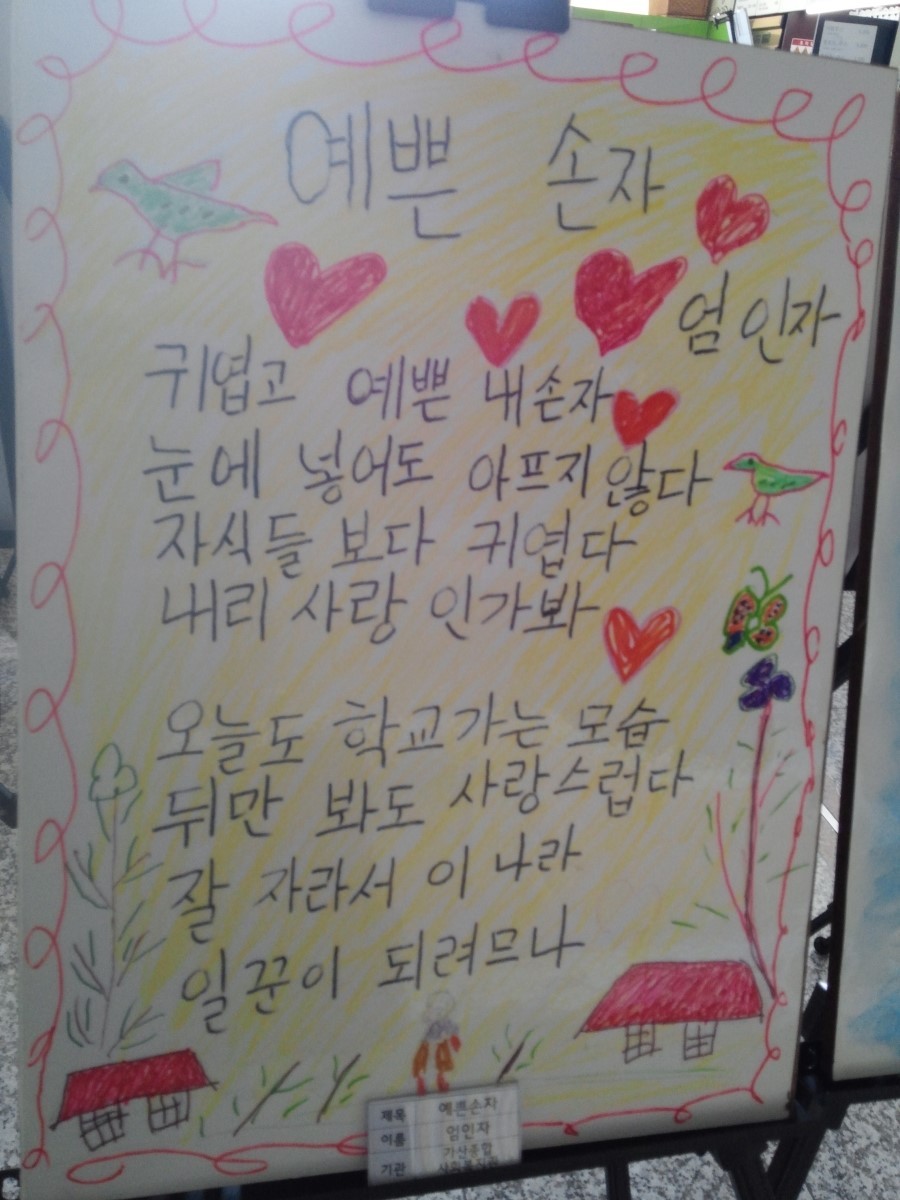 예쁜 손자
엄인자
귀엽고 예쁜 내손자
눈에 넣어도 아프지 않다
자식들 보다 귀엽다
내리 사랑 인가봐
오늘도 학교가는 모습
뒤만 봐도 사랑스럽다
잘 자라서 이 나라
일꾼이 되려므나
제목 예쁜손자
이름 엄인자
기관 가산종합
사회복지관